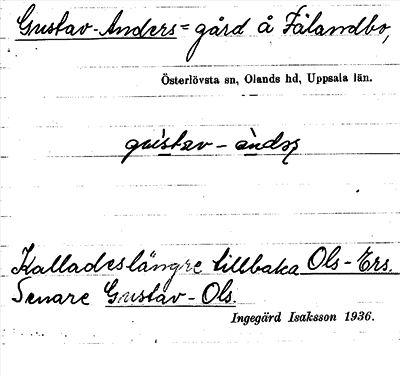 Gustav-Anders= gård å Fålandbo,
Österlövsta sn, Olands hd, Uppsala län.
gùstav-àndəʂ
Kallades längre tillbaka Ols-Ers.
Senare Gustav-Ols.
Ingegärd Isaksson 1936.